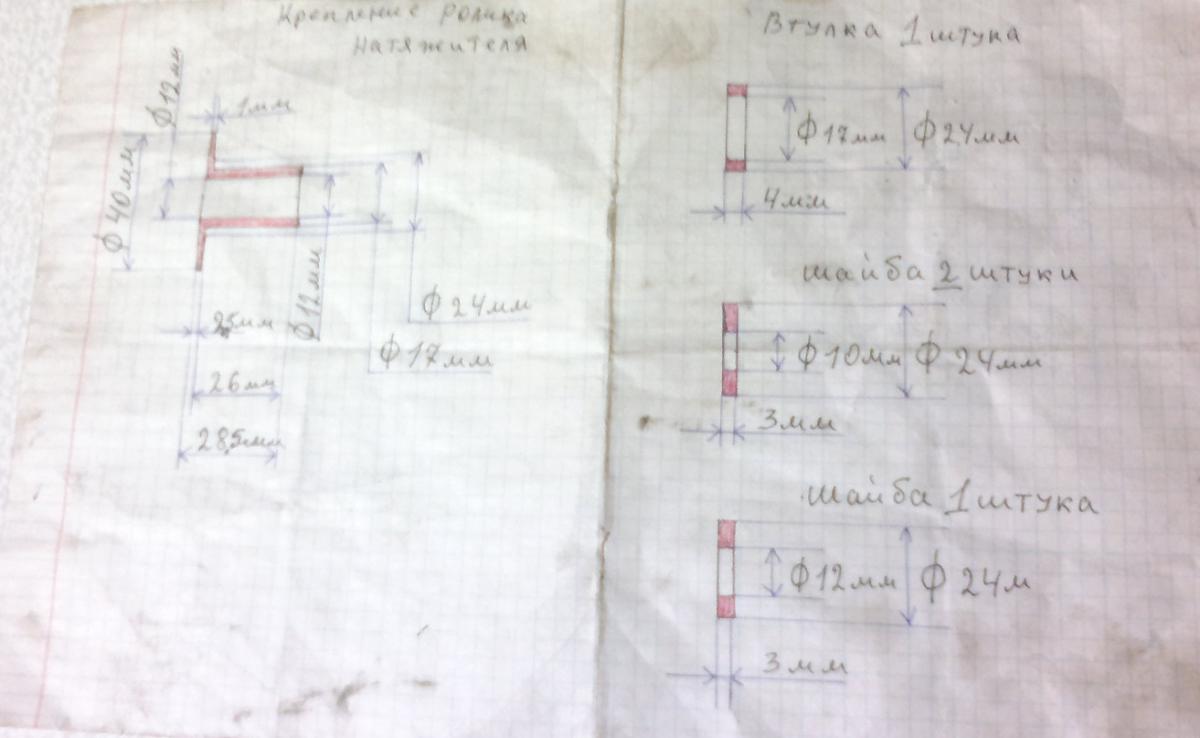 Крепление ролика
натяжителя
ф12мм
1мм
ф 40мм
ф12мм
ф 24мм
ф17мм
26мм
28,5мм
Втулка 1 штука
ф17мм ф24мм
4мм
шайба 2 штуки
ф10мм ф 24мм
3мм
шайба 1 штука
ф12мм ф 24м
3мм